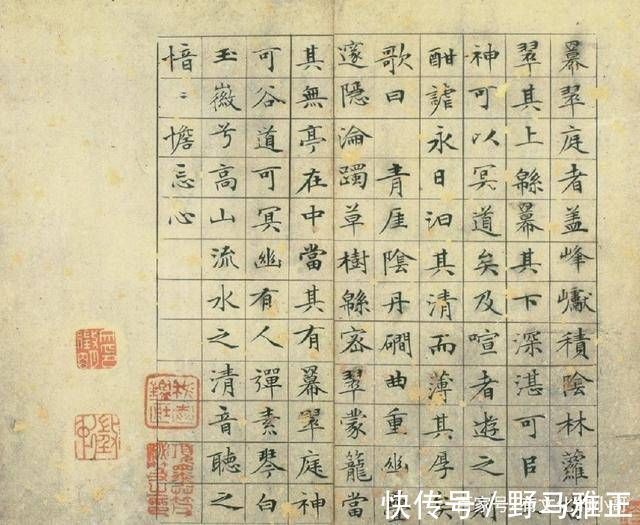 羃翠庭者蓋峰巘積陰林蘿
翠其上緜羃其下深湛可居
神可以冥道矣及喧者遊之
酣謔永日汩其清而薄其厚
歌曰 青厓陰丹磵曲重幽
邃隱淪躅草樹緜密翠蒙籠當
其無亭在中當其有羃翠庭神
可谷道可冥幽有人彈素琴白
玉徽兮高山流水之清音聽之
愔〻憺忘心
快传号/野马雅正